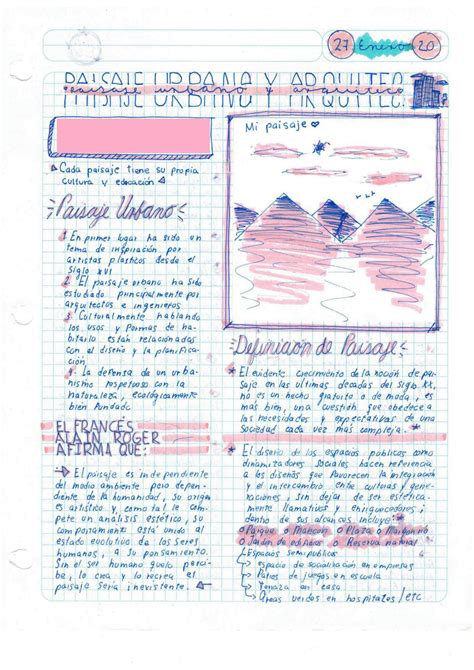 27 Enero 20
PAISAJE URBANO Y ARQUITEC.
paisaje urbano y arquitec
Cada paisaje tiene su propia
cultura y educación
Paisaje Urbano
1. En primer lugar ha sido un
tema de inspiración por
artistas plasticos desde el
Siglo XVI
2. El paisaje urbano ha sido
estudiado principalmente por
arquitectos e ingenieros
3. Culturalmente hablando
los usos y formas de ha-
bitarlo están relacionadas
con el diseño y la planifica-
ción
4. La defensa de un urba-
nismo respetuoso con la
naturaleza, ecológicamente
bien fundado
EL FRANCÉS
ALAIN ROGER
AFIRMA QUE:
El paisaje es independiente
del medio ambiente pero depen-
diente de la humanidad, su origen
es artístico y, como tal le com-
pete un análisis estético, su
comportamiento está unido al
estado evolutivo de los seres
humanos, a su pensamiento.
Sin el ser humano que lo perci-
ba, lo crea y lo recrea el
paisaje sería inexistente.
Mi paisaje
Definiacón de Paisaje
El evidente crecimiento de la noción de pai-
saje en las ultimas decadas del siglo XX,
no es un hecho gratuito o de moda, es
más bien, una cuestión que obedece a
las necesidades y expectativas de una
sociedad cada vez más compleja.
El diseño de los espacios públicos como
dinamizadores sociales hacen referencia
a los diseños que favorecen la integración
y el intercambio entre culturas y gene-
raciones, sin dejar de ser estética-
mente llamativos y enriquecedores;
dentro de sus alcances incluye:
o Parque o Malecón o Plaza o Marginal
o Jardín de edificios o Reserva natural
Espacios semipublicos
espacio de socialización en empresas
Patios de juegos en escuela
Terraza en casa
Áreas verdes en hospitales/etc